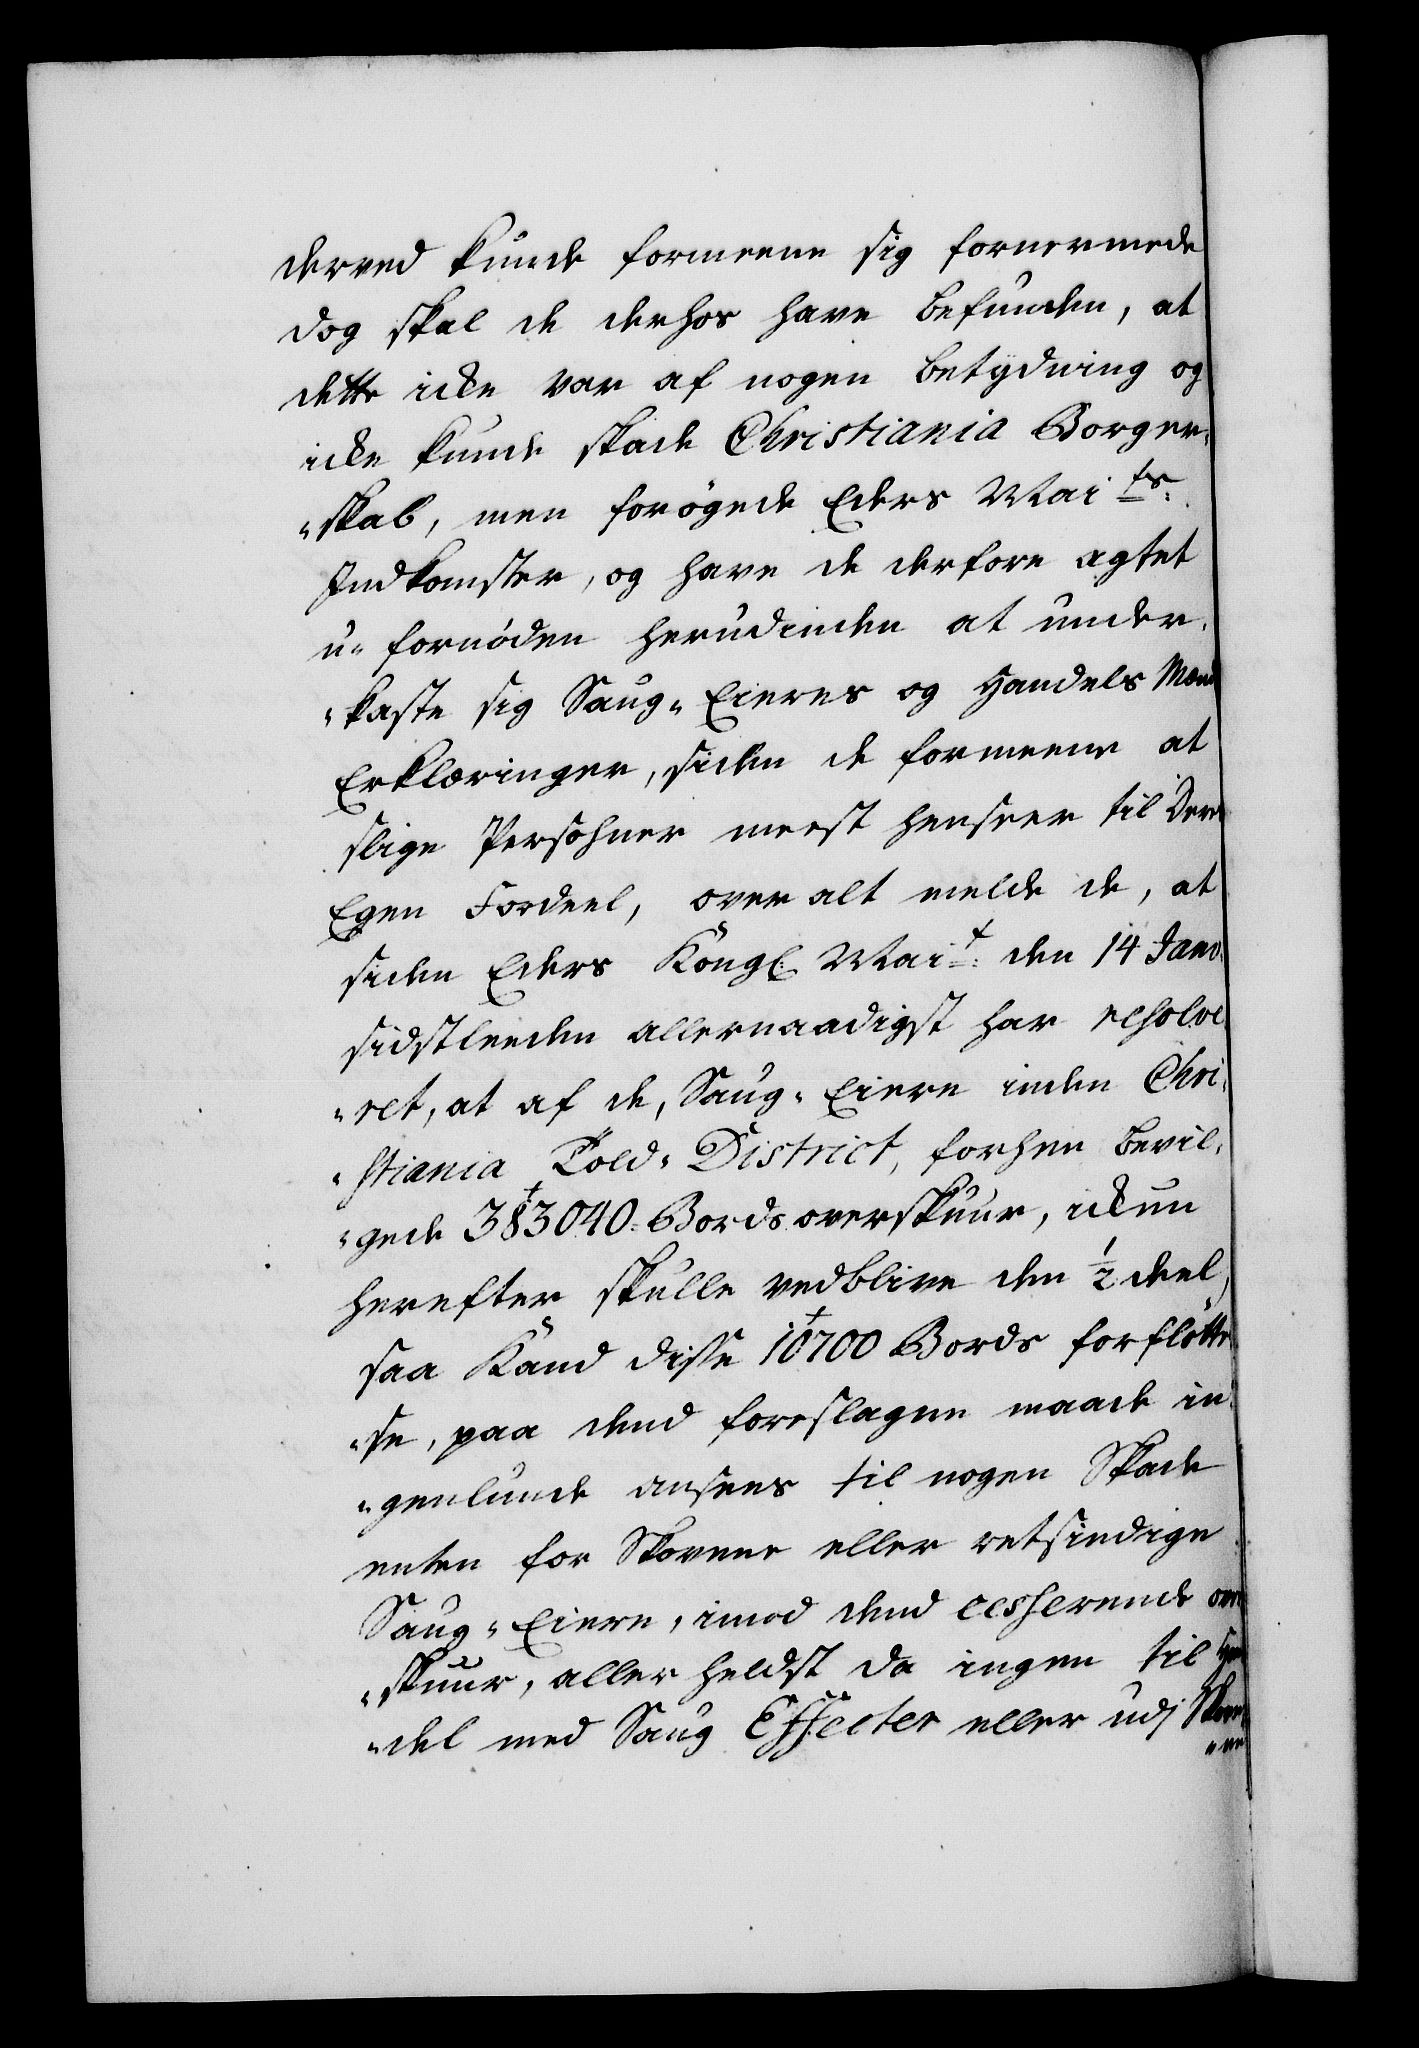 derved kunde formeene sig fornermede
dog skal de derhos have befunden, at
dette icke var af nogen betydning og
icke kunde skade Christiania Borger-
"skab, men forøgede Eders Mai ts:
Indkomster, og have de derfore agtet
u- fornøden herudinden at under-
"kaste sig Saug- Eieres og Handels Mænd
Erklæringer, siden de formeene at
slige Persohner meest henseer til Deres
Egen Fordeel, over alt melde de, at
siden Eders Kongl. Mait: den 14 Janv.
sidstleeden allernaadigst har resolve-
"ret, at af de, Saug- Eiere inden Chri-
"stiania Told- District, forhen bevil-
"gede 383040. Bords overskuur, ickun
herefter skulle vedblive den 1/2 deel,
saa Kand disse 10700 Bords forfløtte
"se, paa dend foreslagne maade in-
"genlunde ansees til nogen Skade
enten for Skovene eller retsindige
Saug- Eiere, imod dend cesherende over
"skuur, allerheldst da ingen til Han
"del med Saug Effecter eller udj Skove
"ne